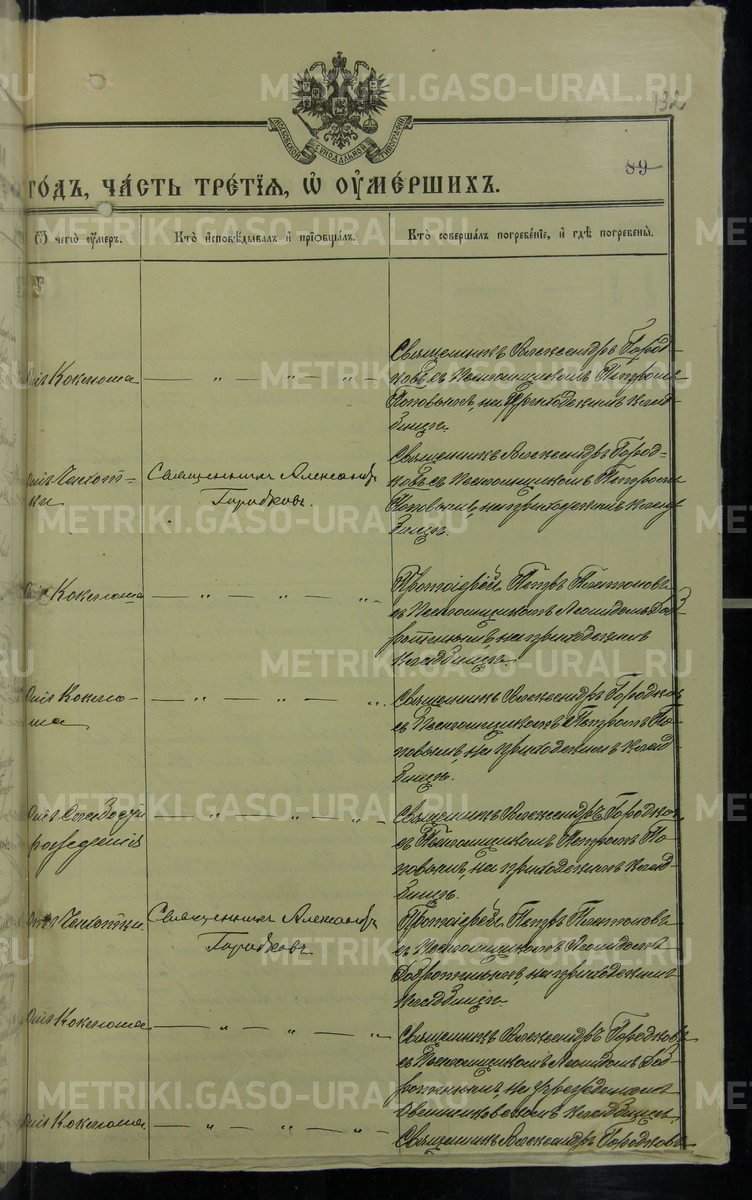 METRIKI.GASO-URAL.RU
132
МОСКОВСКОЙ СѴНОДАЛЬНОЙ ТИПОГРАФІИ
89
го́дъ, ча́сть тре́тїѧ, ѡ҆ ᲂу҆ме́ршихъ.
Ѿ чегѡ̀ ᲂу҆́меръ.
Кто̀ и҆сповѣ́дывалъ и҆ прїѡбща́лъ.
Кто̀ соверша́лъ погребе́нїе, и҆ гдѣ̀ погребены̀.
Коклюша
— " — " — " —
Священникъ Александръ Город-
ковъ съ Псаломщикомъ Петромъ
Поповымъ, на Приходскомъ клад-
бищѣ.
Чахот-
ки
Священникъ Александръ
Городковъ.
Священникъ Александръ Город-
ковъ съ Псаломщикомъ Петромъ
Поповымъ, на приходскомъ клад-
бищѣ.
Коклюша
— " — " — " —
Протоіерей Петръ Платоновъ
съ Псаломщикомъ Леонидомъ Доб-
на приходскомъ
кладбищѣ.
Коклю-
ша
— " — " — " —
Священникъ Александръ Городковъ
съ Псаломщикомъ Петромъ По-
повымъ, на приходскомъ клад-
бищѣ.
— " — " — " —
Священникъ Александръ Городковъ
съ Псаломщикомъ Петромъ По-
повымъ, на приходскомъ клад-
бищѣ.
Чахотки.
Священникъ Александръ
Городковъ
Протоіерей Петръ Платоновъ
съ Псаломщикомъ Леонидомъ
на приходскомъ
кладбищѣ.
Коклюша
— " — " — " —
Священникъ Александръ Городковъ
съ Псаломщикомъ Леонидомъ Доб-
на
кладбищѣ.
Коклюша
— " — " — " —
Священникъ Александръ Городковъ